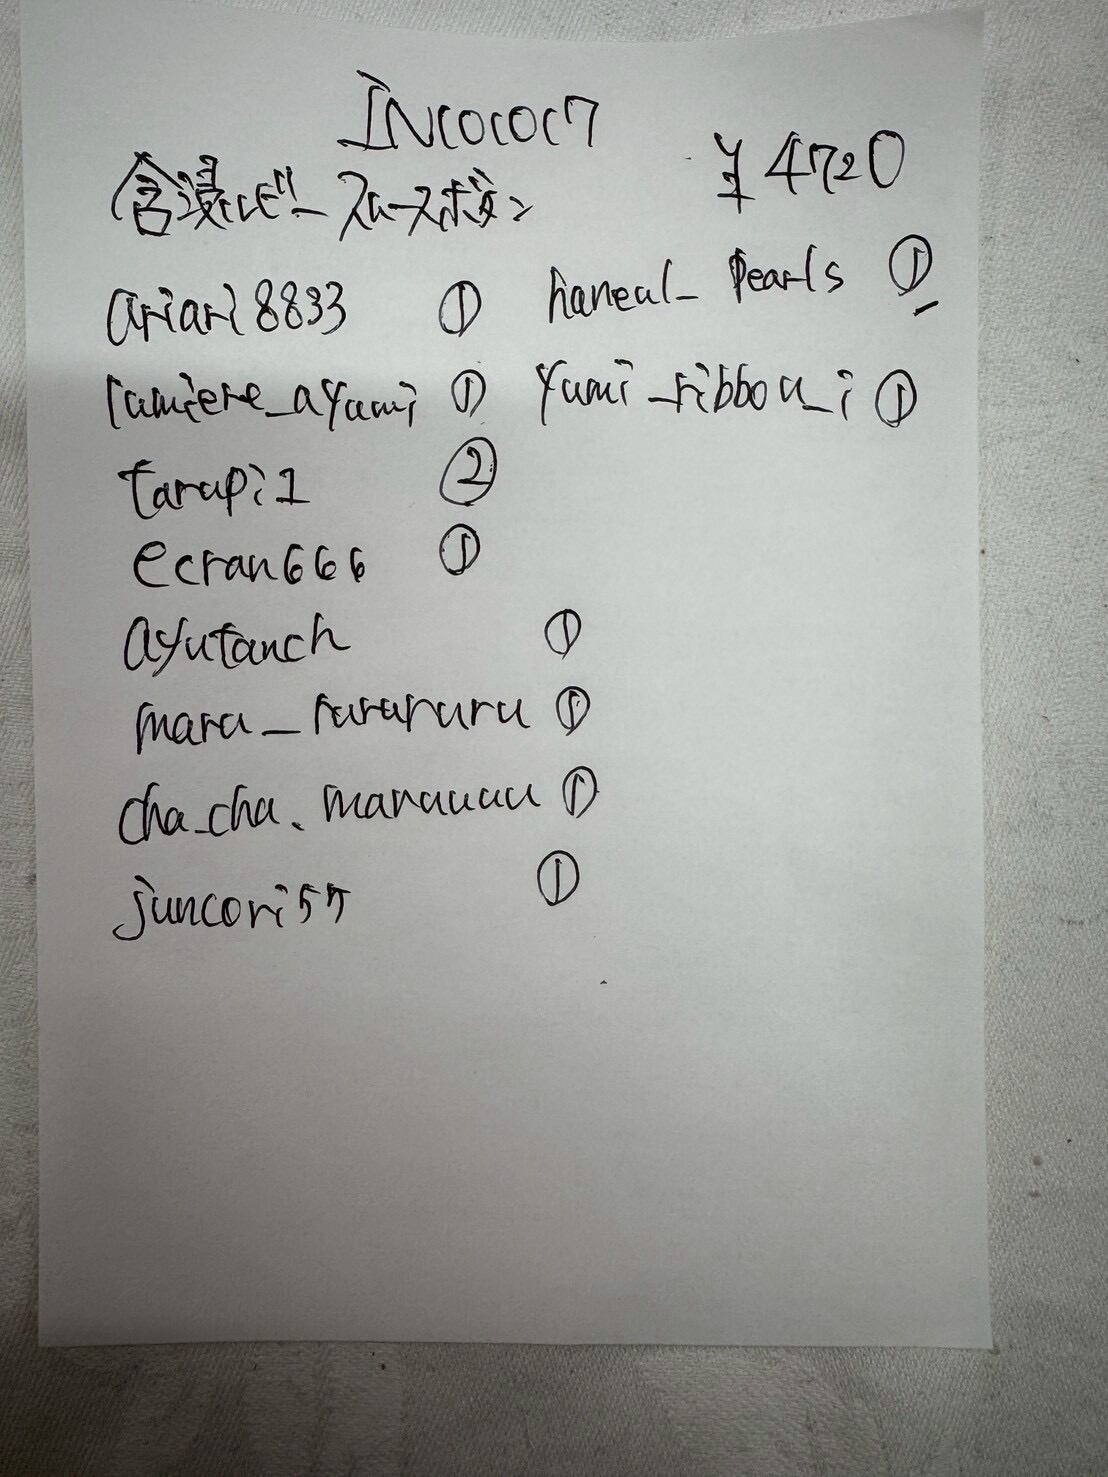 INCOCOC7
¥4720
含浸ルビースムースボタン
ariari8833 ①
haneul_pearls ①
lumiere_ayumi ①
yumi_ribbon_i ①
tarupi1 ②
ecran666 ①
ayutanch ①
maru_rurururu ①
cha_cha.maruuuu ①
juncori57 ①